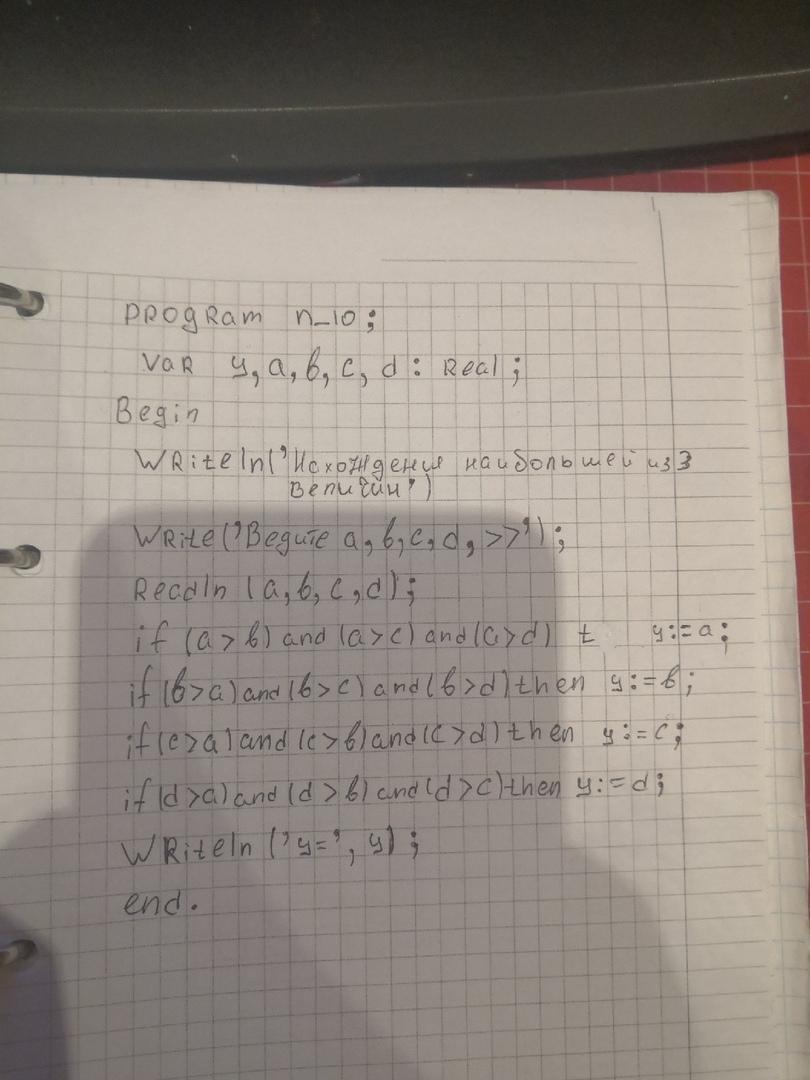 program n_10;
var y, a, b, c, d : Real;
Begin
Writeln('Нахождения наибольшей из 3
величин')
Write('Ведите a, b, c, d, >>');
Readln (a, b, c, d);
if (a > b) and (a > c) and (a > d) t y:= a;
if (b > a) and (b > c) and (b > d) then y:= b;
if (c > a) and (c > b) and (c > d) then y:= c;
if (d > a) and (d > b) and (d > c) then y:= d;
Writeln ('y=', y);
end.